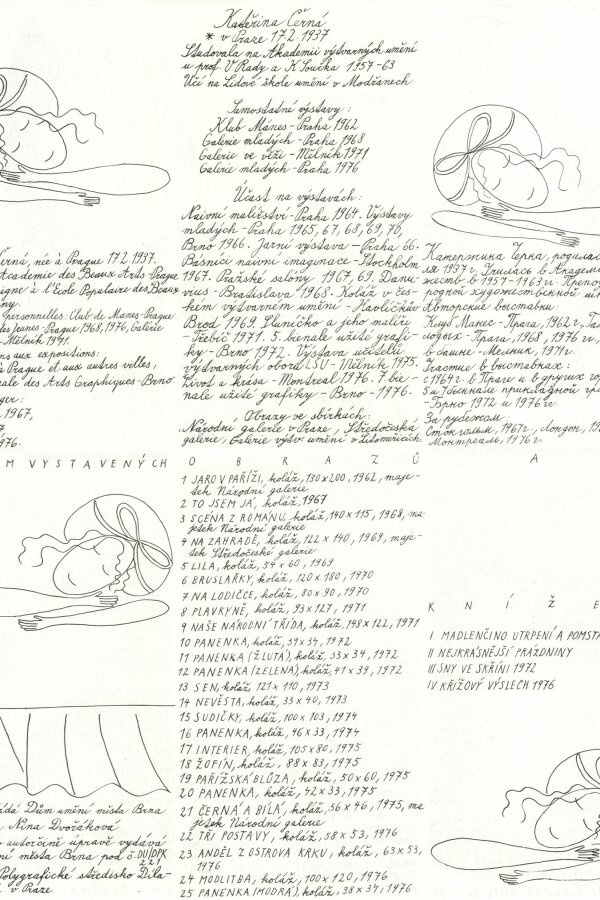 Kateřina Černá
* v Praze 17.2.1937
Studovala na Akademii výtvarných umění
u prof. V. Rady a K. Součka 1957-63
Učí na Lidové škole umění v Modřanech
Samostatné výstavy:
Klub Mánes - Praha 1962
Galerie mladých - Praha 1968
Galerie ve věži - Mělník 1971
Galerie mladých - Praha 1976
Účast na výstavách:
Naivní malířství - Praha 1964. Výstavy
mladých - Praha 1965, 67, 68, 69, 70,
Brno 1966. Jarní výstava - Praha 66.
Básníci naivní imaginace - Stockholm
1967. Pražské salony 1967, 69. Danu-
vius - Bratislava 1968. Koláž v čes-
kém výtvarném umění - Havlíčkův
Brod 1969. Sluníčko a jeho malíři
- Třebíč 1971. 5. bienale užité grafi-
ky - Brno 1972. Výstava učitelů
výtvarných oborů LŠU - Mělník 1975.
Život a krása - Montreal 1976. 7. bie-
nale užité grafiky - Brno - 1976.
Obrazy ve sbírkách:
Národní galerie v Praze, Středočeská
galerie, Galerie výtv. umění v Litoměřicích
Černá, née à Prague 17.2.1937.
Academie des Beaux Arts Prague
eigne à l'Ecole Populaire des Beaux
ny.
personnelles: Club de Manes Prague
des Jeunes Prague 1968, 1976, Galerie
- Mělník 1971.
ns aux expositions:
à Prague et aux autres villes,
nale des Arts Graphiques - Brno
ger:
1967,
7
976.
Катержина Черна, родилас
ля 1937 г. Училась в Академ
жеств в 1957-1963 гг. Препо
родной художественной шк
Авторские выставки:
Клуб Манес - Прага, 1962 г., Гал
лодых - Прага, 1968, 1976 гг.,
в башне - Мелник, 1971 г.
Участие в выставках:
с 1964 г. в Праге и в других гор
5 и 7 биеннале прикладной гра
- Брно 1972 и 1976 гг.
За рубежом:
Стокгольм, 1967 г., Лондон, 19
Монтреаль, 1976 г.
M VYSTAVENÝCH OBRAZŮ A
1 JARO V PAŘÍŽI, koláž, 130 x 200, 1962, maje-
tek Národní galerie
2 TO JSEM JÁ, koláž, 1967
3 SCÉNA Z ROMÁNU, koláž, 140 x 115, 1968, ma
jetek Národní galerie
4 NA ZAHRADĚ, koláž, 122 x 140, 1969, maje-
tek Středočeské galerie
5 LILA, koláž, 54 x 60, 1969
6 BRUSLAŘKY, koláž, 120 x 180, 1970
7 NA LODIČCE, koláž, 80 x 90, 1970
8 PLAVKYNĚ, koláž, 93 x 127, 1971
9 NAŠE NÁRODNÍ TŘÍDA, koláž, 148 x 122, 1971
10 PANENKA, koláž, 39 x 34, 1972
11 PANENKA (ŽLUTÁ), koláž, 33 x 34, 1972
12 PANENKA (ZELENÁ), koláž, 41 x 39, 1972
13 SEN, koláž, 121 x 110, 1973
14 NEVĚSTA, koláž, 33 x 40, 1973
15 SUDIČKY, koláž, 100 x 103, 1974
16 PANENKA, koláž, 46 x 33, 1974
17 INTERIER, koláž, 105 x 80, 1975
18 ŽOFÍN, koláž, 88 x 83, 1975
19 PAŘÍŽSKÁ BLŮZA, koláž, 50 x 60, 1975
20 PANENKA, koláž, 42 x 33, 1975
21 ČERNÁ A BÍLÁ, koláž, 56 x 46, 1975, ma
jetek Národní galerie
22 TŘI POSTAVY, koláž, 58 x 53, 1976
23 ANDĚL Z OSTROVA KRKU, koláž, 63 x 53,
1976
24 MODLITBA, koláž, 100 x 120, 1976
25 PANENKA (MODRÁ), koláž, 38 x 34, 1976
KNÍŽE
I MADLENČINO UTRPENÍ A POMSTA
II NEJKRÁSNĚJŠÍ PRÁZDNINY
III SNY VE SKŘÍNI 1972
IV KŘÍŽOVÝ VÝSLECH 1976
ádá Dům umění města Brna
Nina Dvořáková
autorčině úpravě vydává
ní města Brna pod č. DU/DPK
221
Polygrafické středisko Díla-
v Praze